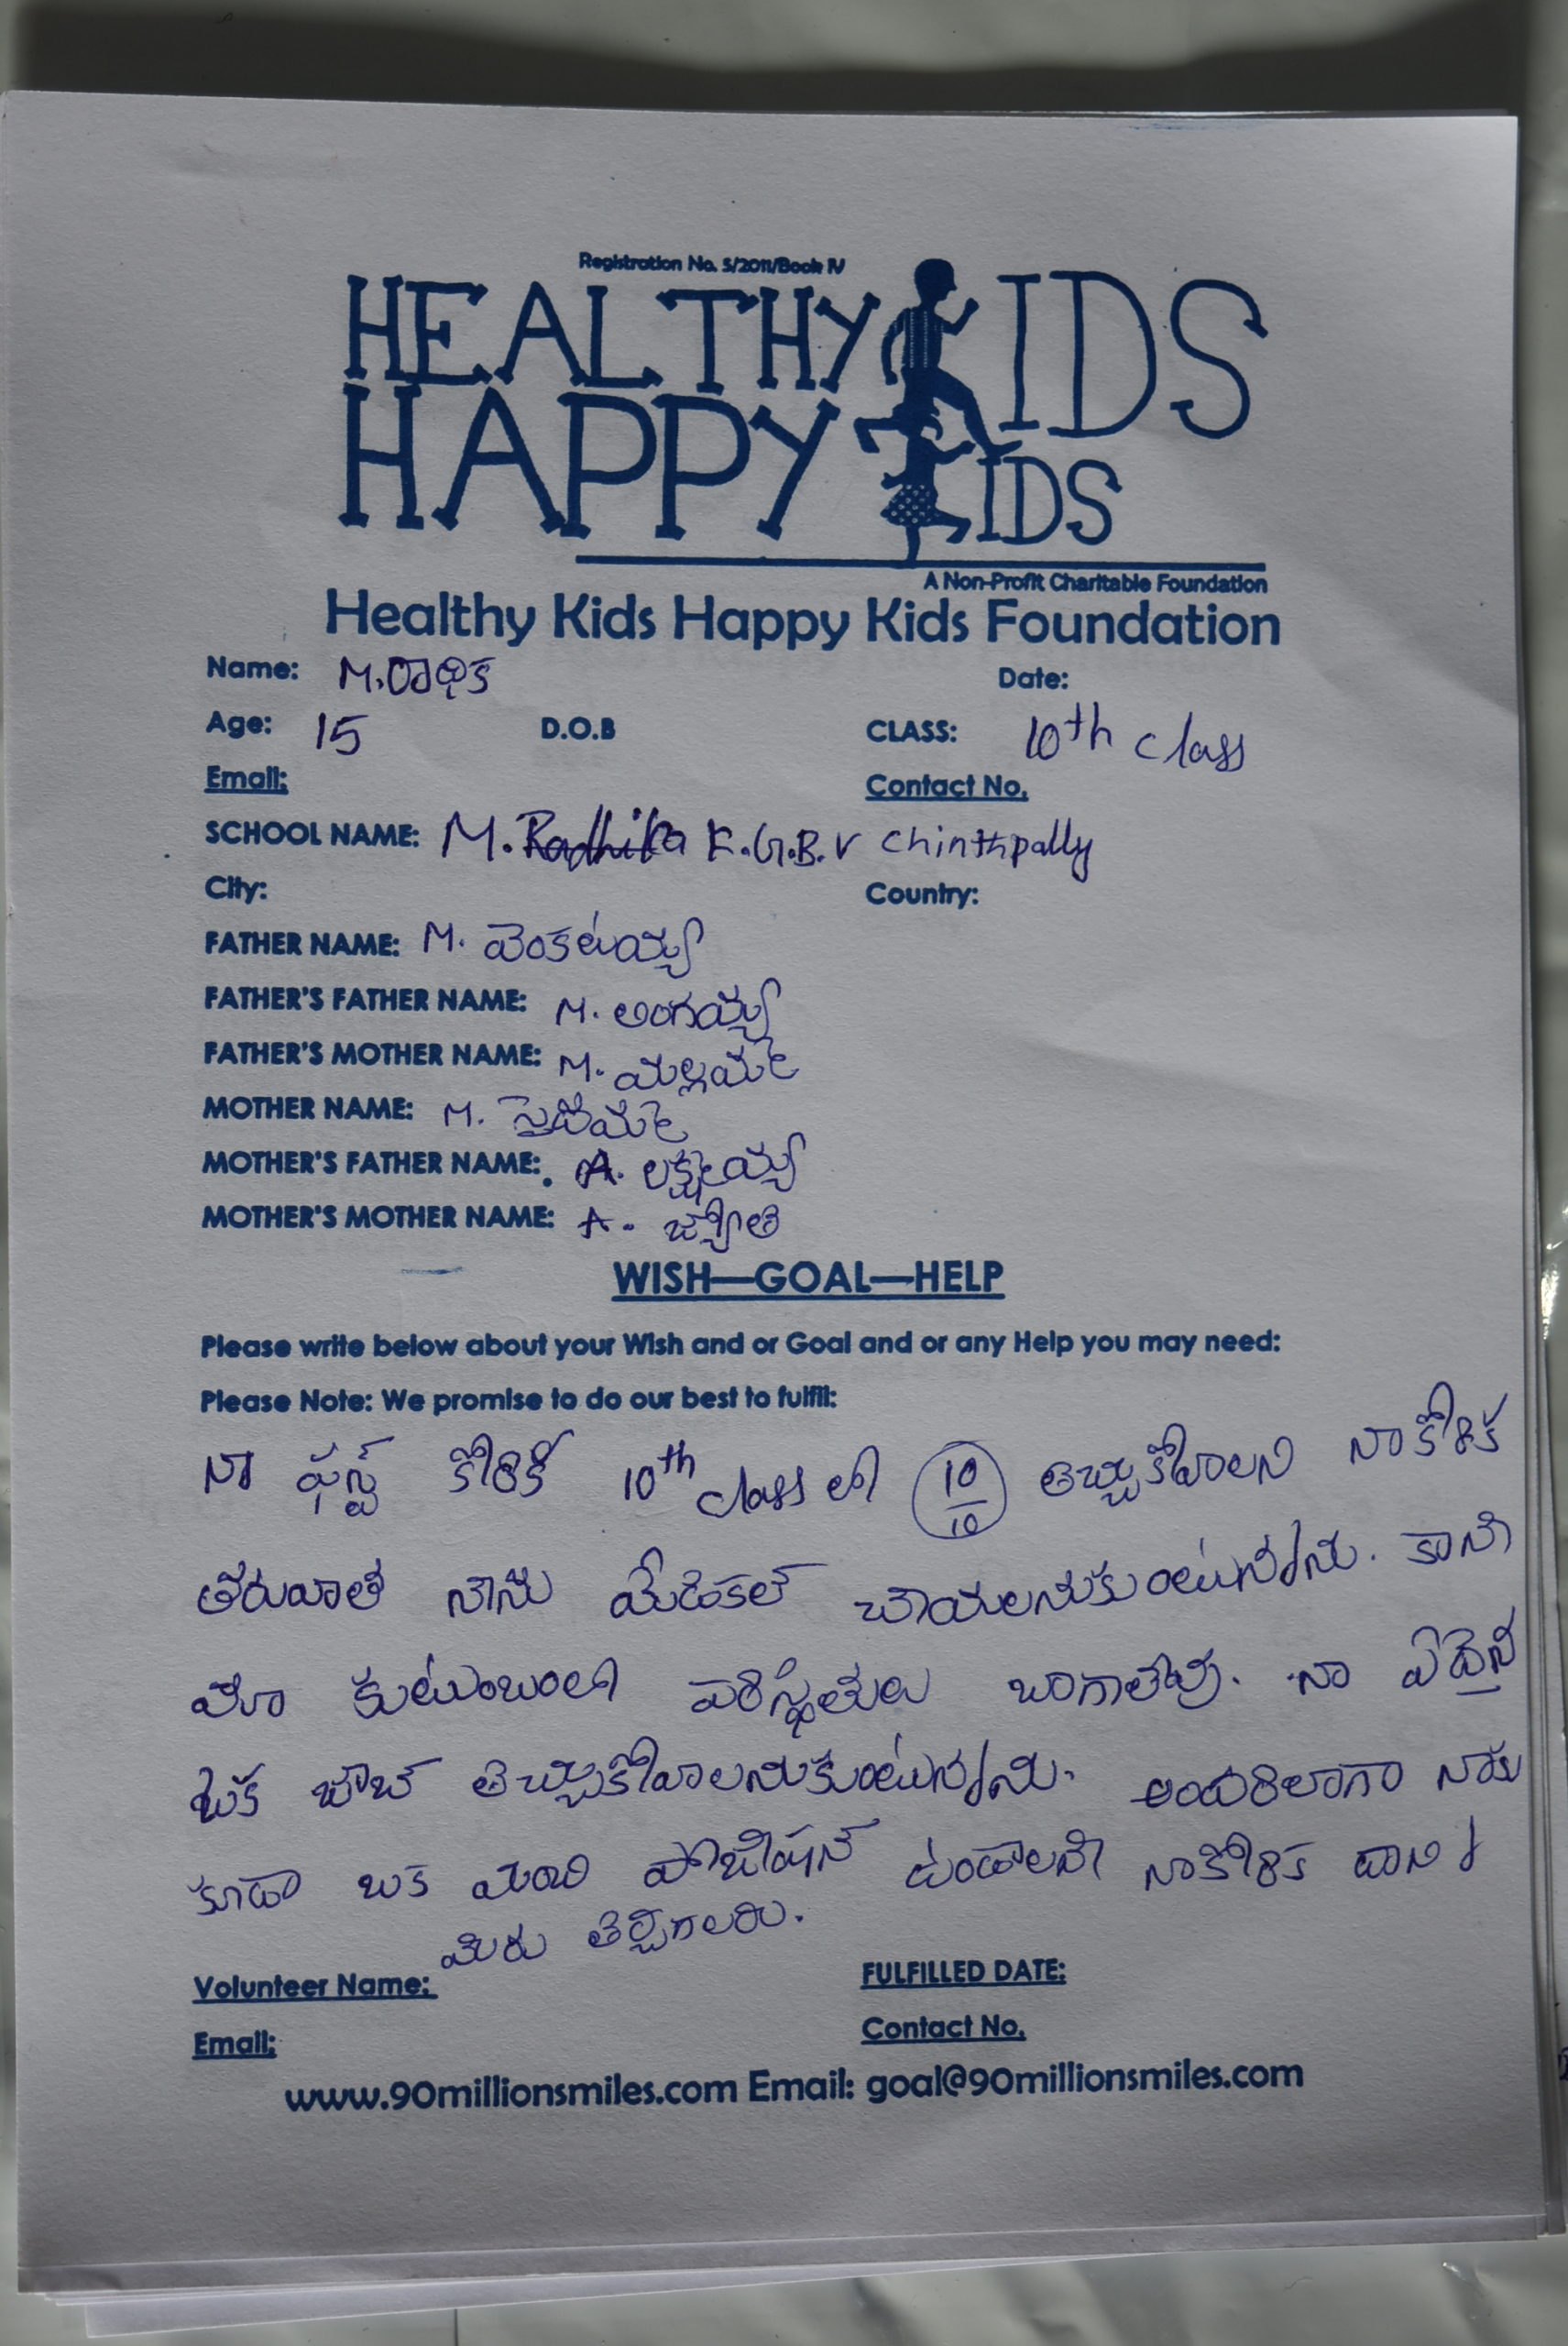 Registration No. 5/2011/Book IV
HEALTHY KIDS
HAPPY KIDS
A Non-Profit Charitable Foundation
Healthy Kids Happy Kids Foundation
Name: M. రాధిక Date:
Age: 15 D.O.B CLASS: 10th class
Email: Contact No.
SCHOOL NAME: M. Radhika K.G.B.V Chinthpally
City: Country:
FATHER NAME: M. వెంకటయ్య
FATHER'S FATHER NAME: M. లింగయ్య
FATHER'S MOTHER NAME: M. మల్లమ్మ
MOTHER NAME: M.
MOTHER'S FATHER NAME: A. లక్ష్మయ్య
MOTHER'S MOTHER NAME: A. జ్యోతి
WISH—GOAL—HELP
Please write below about your Wish and or Goal and or any Help you may need:
Please Note: We promise to do our best to fulfil:
నా ఫస్ట్ కోరిక 10th class లో 10/10 తెచ్చుకోవాలని నా కోరిక
తరువాత నాను మేడికల్ చాయలనుకుంటున్నాను. కాని
మా కుటుంబంలో పరిస్థితులు బాగాలేవు. నా ఏదైన
ఒక జాబ్ తెచ్చుకోవాలనుకుంటున్నాను. అందరిలాగా నాకు
కూడా ఒక మంచి పొజిషన్ ఉండాలని నాకోరిక దాని
మిరు తిర్చగలరు.
Volunteer Name: FULFILLED DATE:
Email: Contact No.
www.90millionsmiles.com Email: goal@90millionsmiles.com